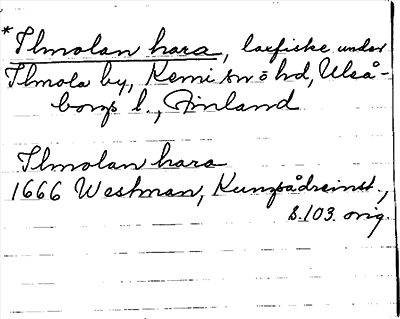 *Ilmolan hara, laxfiske under
Ilmola by, Kemi sn ö hd, Uleå-
borgs l., Finland.
Ilmolan hara
1666 Westman, Kungsådreinst.,
s. 103. orig.